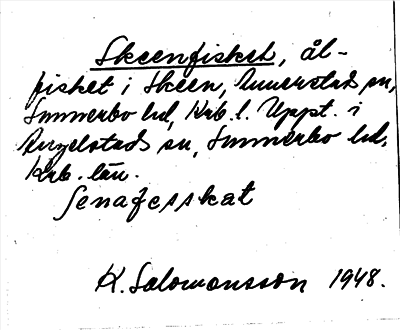 Skeenfisket, ål-
fisket i Skeen, Annerstads sn,
Sunnerbo hd, Krb. l. Uppt. i
Angelstads sn, Sunnerbo hd,
Krb. län.
Senafesskat
K. Salomonsson 1948.